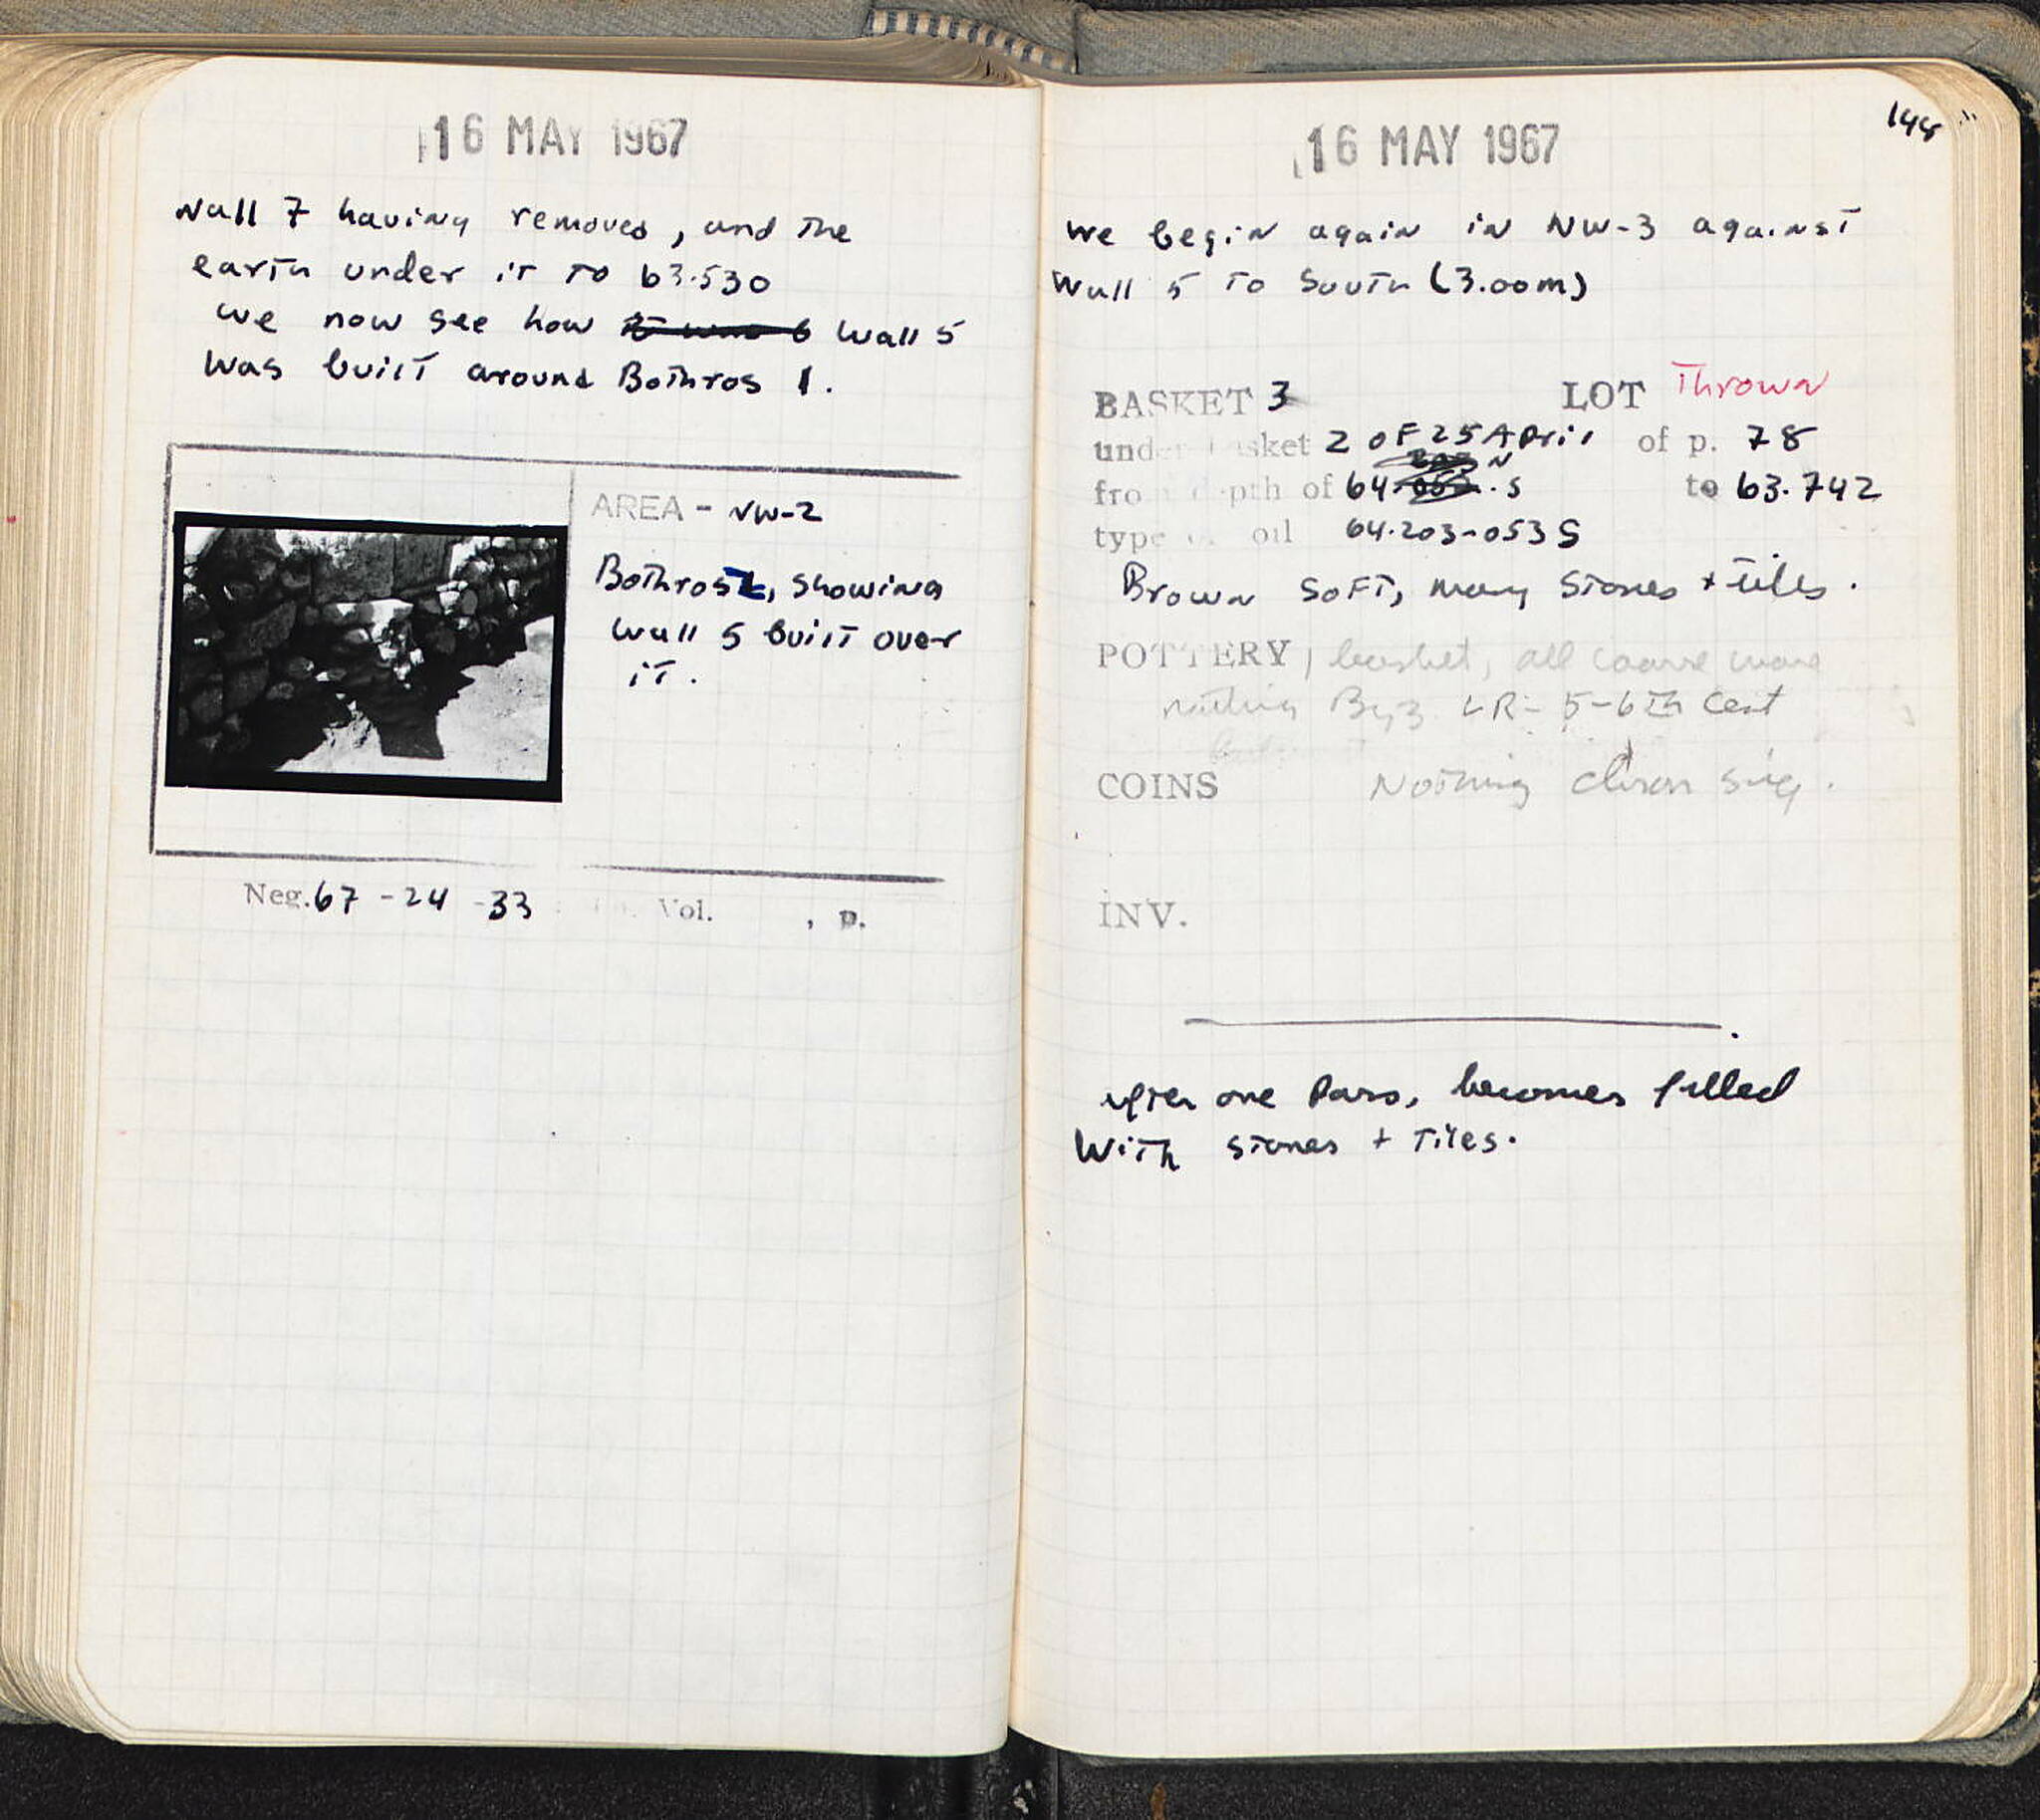 16 MAY 1967
Wall 7 having removed, and the
earth under it to 63.530
we now see how Wall 5
was built around Bothros 1.
AREA - NW-2
Bothros 1, showing
Wall 5 built over
it.
Neg. 67 - 24 - 33 Vol. , p.
144
16 MAY 1967
We begin again in NW-3 against
Wall 5 to South (3.00m)
BASKET 3 LOT Thrown
under basket 2 of 25 April of p. 78
N
from depth of 64. .S to 63.742
type of soil 64.203-053 S
Brown soft, many stones + tiles.
POTTERY 1 basket, all coarse ware
nothing Byz LR- 5-6th Cent
COINS Nothing chron sig.
INV.
after one pass, becomes filled
with stones + tiles.